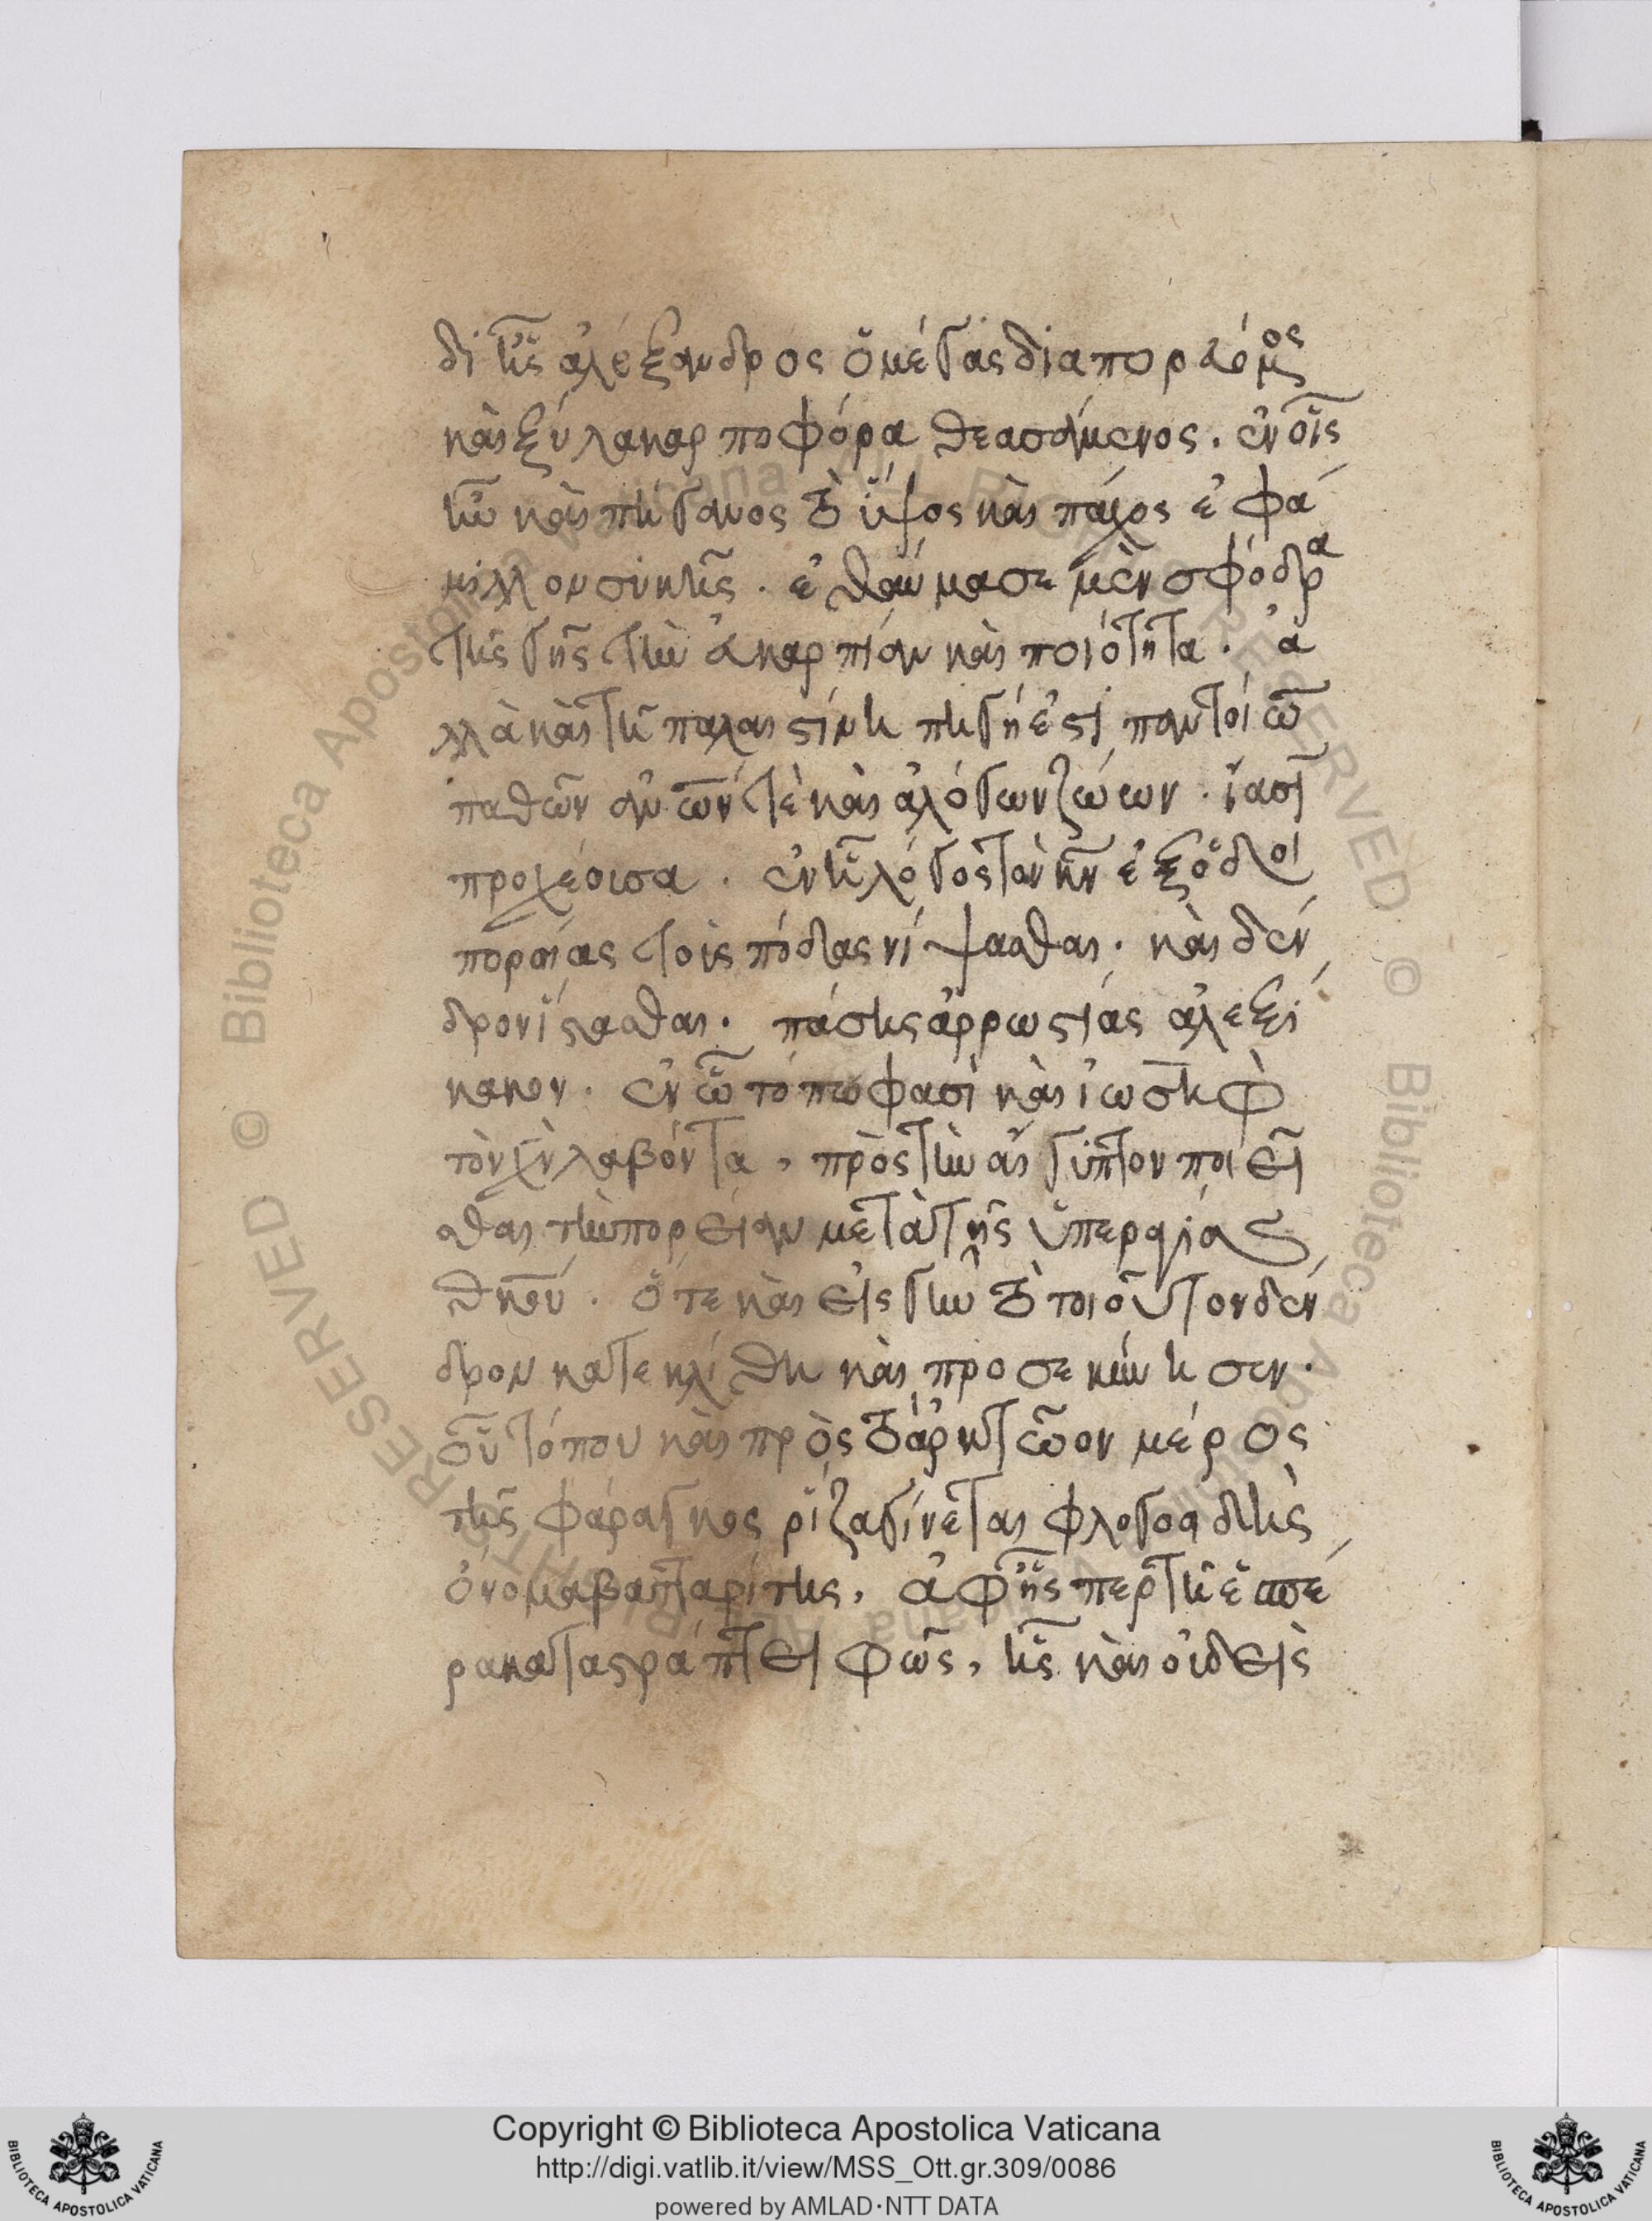 δι ἧς ἀλέξανδρος ὁ μέγας διαπορευόμενος
καὶ ξύλα καρποφόρα θεασάμενος. ἐν οἷς
ἦν καὶ πήγανος τὸ ὕψος καὶ πάχος ἐφά
μιλλον συκῆς. ἐθαύμασε μὲν σφόδρα
τῆς γῆς τὴν ἀκαρπίαν καὶ ποιότητα. ἀ
λλὰ καὶ τῆ παλαιστίνη πηγή ἐστι παντοίων
παθῶν ἀνων τὲ καὶ ἀλόγων ζώων. ἴασιν
προχέουσα. ἐν ᾗ λόγος τὸν κν ἐξ ὁδοι
πορίας τοὺς πόδας νίψασθαι. καὶ δέν
δρον ἵστασθαι. πάσης ἀρρωστίας ἀλεξί
κακον. ἐν ᾧ τόπω φασὶ καὶ ἰωσὴφ
τὸν χν λαβόντα, πρὸς τὴν αἴγυπτον ποιεῖ
σθαι τὴν πορείαν μετὰ τῆς ὑπεραγίας
θκου. ὅτε καὶ εἰς γῆν τὸ τοιοῦτον δέν
δρον κατεκλίθη καὶ προσεκύνησεν.
οὗ τόπου καὶ πρὸς τὸ ἀρκτῶον μέρος
τῆς φάραγκος ῥίζα γίνεται φλογοαδὴς
ὄνομα βαπταρίτης, ἀφ ἧς περ τῆ ἑσπέ
ρα καταστράπτει φῶς, ἧς καὶ οὐδεὶς
Copyright © Biblioteca Apostolica Vaticana
http://digi.vatlib.it/view/MSS_Ott.gr.309/0086
powered by AMLAD·NTT DATA